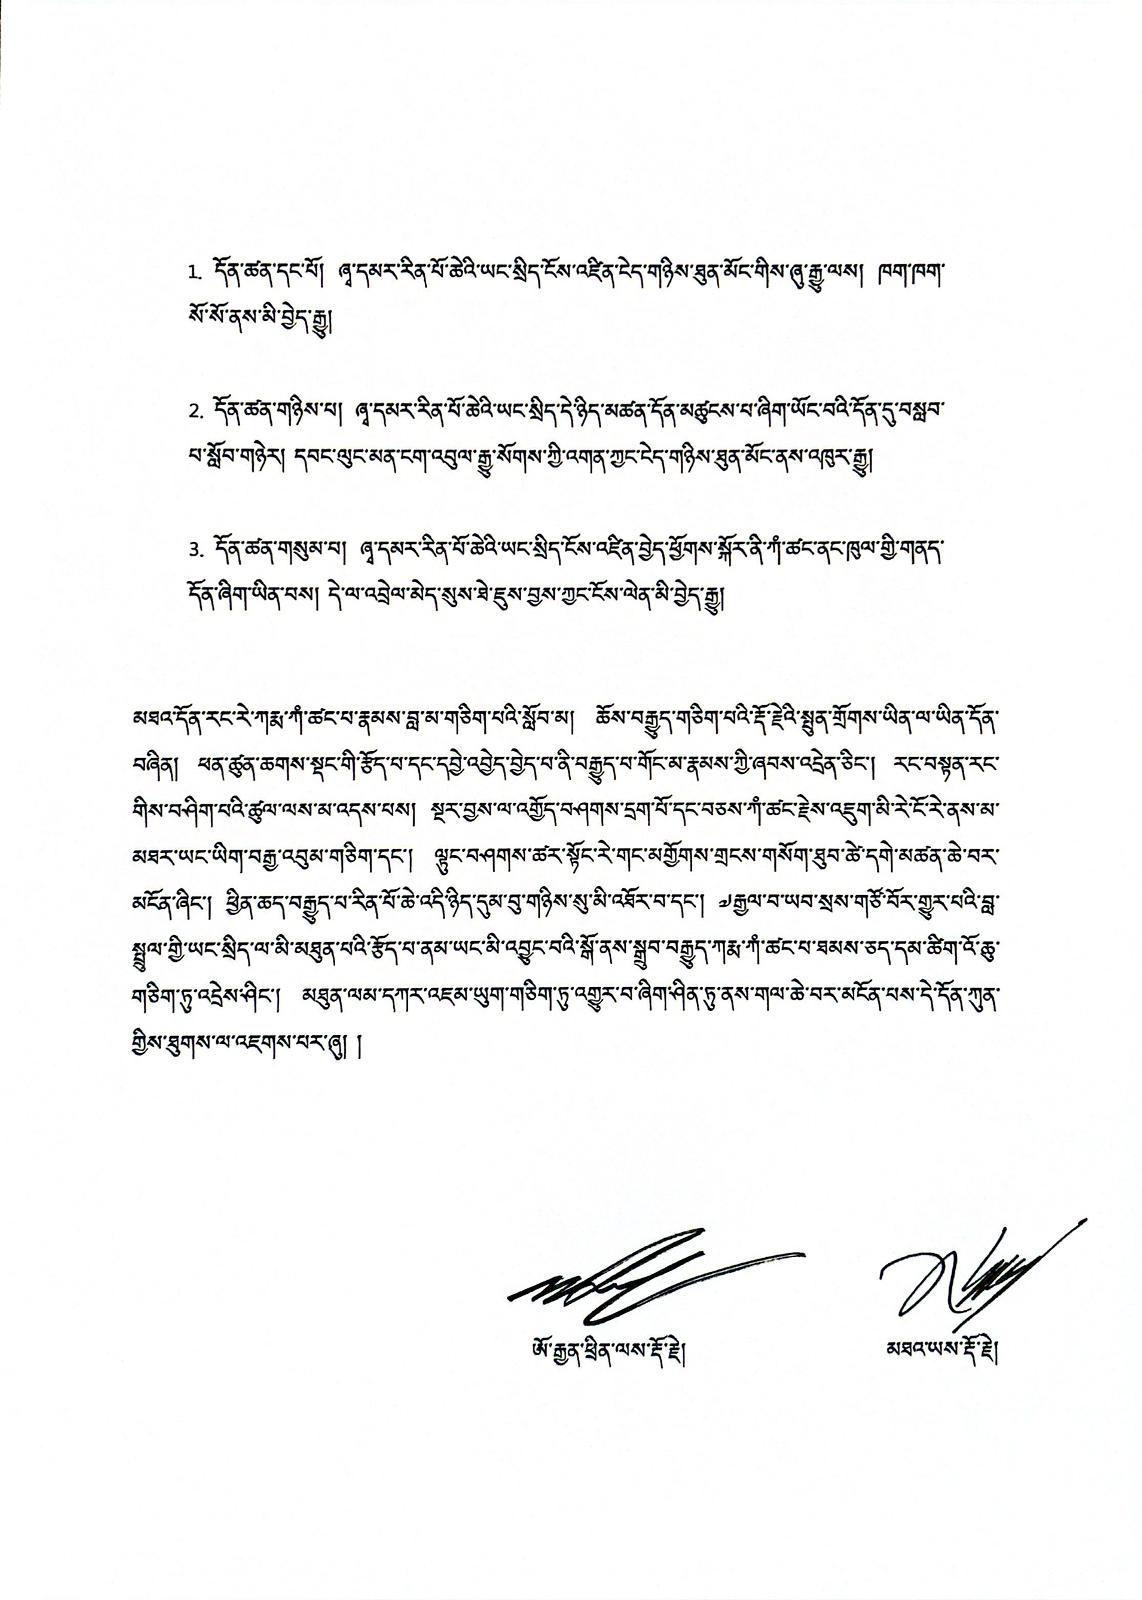 1. དོན་ཚན་དང་པོ། ཞྭ་དམར་རིན་པོ་ཆེའི་ཡང་སྲིད་ངོས་འཛིན་ངེད་གཉིས་ཐུན་མོང་གིས་ཞུ་རྒྱུ་ལས། ཁག་ཁག་
སོ་སོ་ནས་མི་བྱེད་རྒྱུ།
2. དོན་ཚན་གཉིས་པ། ཞྭ་དམར་རིན་པོ་ཆེའི་ཡང་སྲིད་དེ་ཉིད་མཚན་དོན་མཚུངས་པ་ཞིག་ཡོང་བའི་དོན་དུ་བསླབ་
པ་སློབ་གཉེར། དབང་ལུང་མན་ངག་འབུལ་རྒྱུ་སོགས་ཀྱི་འགན་ཀྱང་ངེད་གཉིས་ཐུན་མོང་ནས་འཁུར་རྒྱུ།
3. དོན་ཚན་གསུམ་པ། ཞྭ་དམར་རིན་པོ་ཆེའི་ཡང་སྲིད་ངོས་འཛིན་བྱེད་ཕྱོགས་སྐོར་ནི་ཀཾ་ཚང་ནང་ཁུལ་གྱི་གནད་
དོན་ཞིག་ཡིན་པས། དེ་ལ་འབྲེལ་མེད་སུས་ཐེ་ཇུས་བྱས་ཀྱང་ངོས་ལེན་མི་བྱེད་རྒྱུ།
མཐའ་དོན་རང་རེ་ཀརྨ་ཀཾ་ཚང་པ་རྣམས་བླ་མ་གཅིག་པའི་སློབ་མ། ཆོས་བརྒྱུད་གཅིག་པའི་རྡོ་རྗེའི་སྤུན་གྲོགས་ཡིན་ལ་ཡིན་དོན་
བཞིན། ཕན་ཚུན་ཆགས་སྡང་གི་རྩོད་པ་དང་དབྱེ་འབྱེད་བྱེད་པ་ནི་བརྒྱུད་པ་གོང་མ་རྣམས་ཀྱི་ཞབས་འདྲེན་ཅིང་། རང་བསྟན་རང་
གིས་བཤིག་པའི་ཚུལ་ལས་མ་འདས་པས། སྔར་བྱས་ལ་འགྱོད་བཤགས་དྲག་པོ་དང་བཅས་ཀཾ་ཚང་རྗེས་འཇུག་མི་རེ་ངོ་རེ་ནས་མ་
མཐར་ཡང་ཡིག་བརྒྱ་འབུམ་གཅིག་དང་། ལྟུང་བཤགས་ཚར་སྟོང་རེ་གང་མགྱོགས་གྲངས་གསོག་ཐུབ་ཚེ་དགེ་མཚན་ཆེ་བར་
མངོན་ཞིང་། ཕྱིན་ཆད་བརྒྱུད་པ་རིན་པོ་ཆེ་འདི་ཉིད་དུམ་བུ་གཉིས་སུ་མི་འཐོར་བ་དང་། ༧རྒྱལ་བ་ཡབ་སྲས་གཙོ་བོར་གྱུར་པའི་བླ་
སྤྲུལ་གྱི་ཡང་སྲིད་ལ་མི་མཐུན་པའི་རྩོད་པ་ནམ་ཡང་མི་འབྱུང་བའི་སྒོ་ནས་སྒྲུབ་བརྒྱུད་ཀརྨ་ཀཾ་ཚང་པ་ཐམས་ཅད་དམ་ཚིག་འོ་ཆུ་
གཅིག་ཏུ་འདྲེས་ཤིང་། མཐུན་ལམ་དཀར་འཇམ་ཡུག་གཅིག་ཏུ་འགྱུར་བ་ཞིག་ཤིན་ཏུ་ནས་གལ་ཆེ་བར་མངོན་པས་དེ་དོན་ཀུན་
གྱིས་ཐུགས་ལ་འཇགས་པར་ཞུ། །
ཨོ་རྒྱན་ཕྲིན་ལས་རྡོ་རྗེ། མཐའ་ཡས་རྡོ་རྗེ།